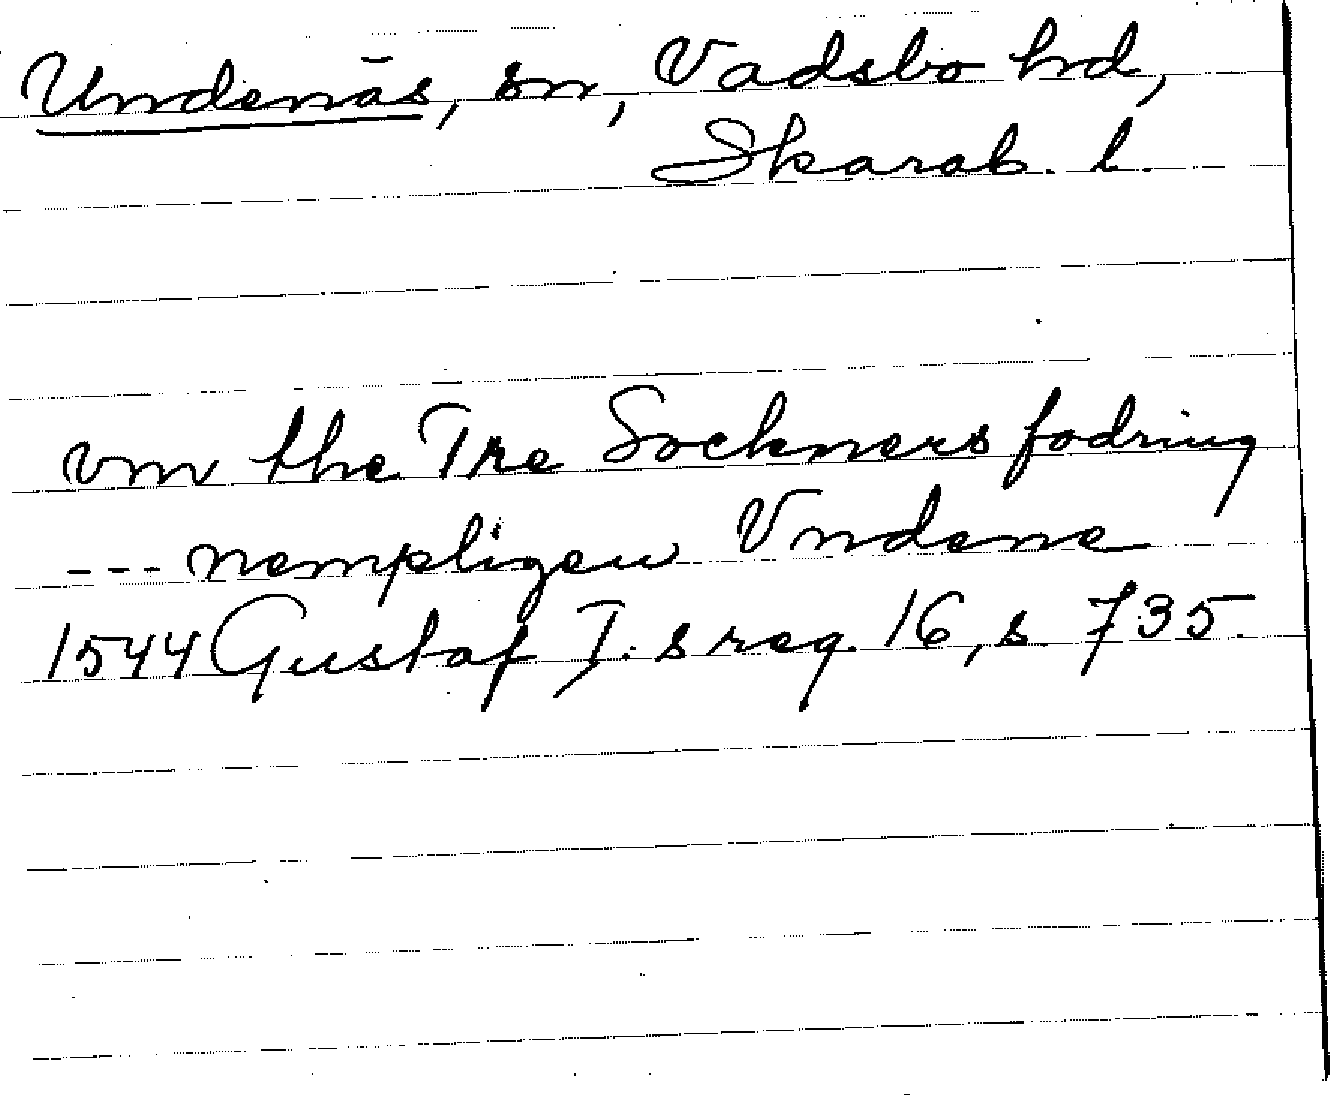 Undenäs, sn, Vadsbo hd,
Skarab. l.
vm the Tre Sockners fodring
--- nempligen Vndene
1544 Gustaf I:s reg. 16, s 735.